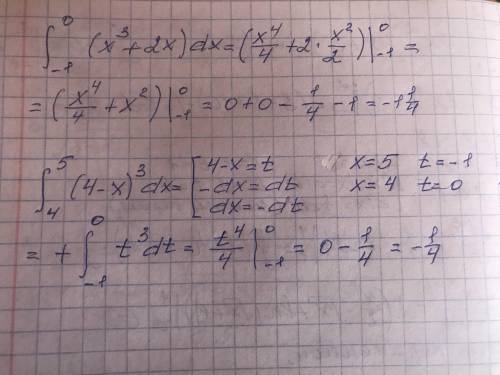 ∫₋₁⁰ (x³+2x)dx = (x⁴/4 + 2·x²/2)|₋₁⁰ =
= (x⁴/4 + x²)|₋₁⁰ = 0+0 - 1/4 - 1 = -1 1/4
∫₄⁵ (4-x)³dx = [4-x=t x=5 t=-1
-dx=dt x=4 t=0
dx=-dt
= + ∫₋₁⁰ t³dt = t⁴/4|₋₁⁰ = 0 - 1/4 = -1/4